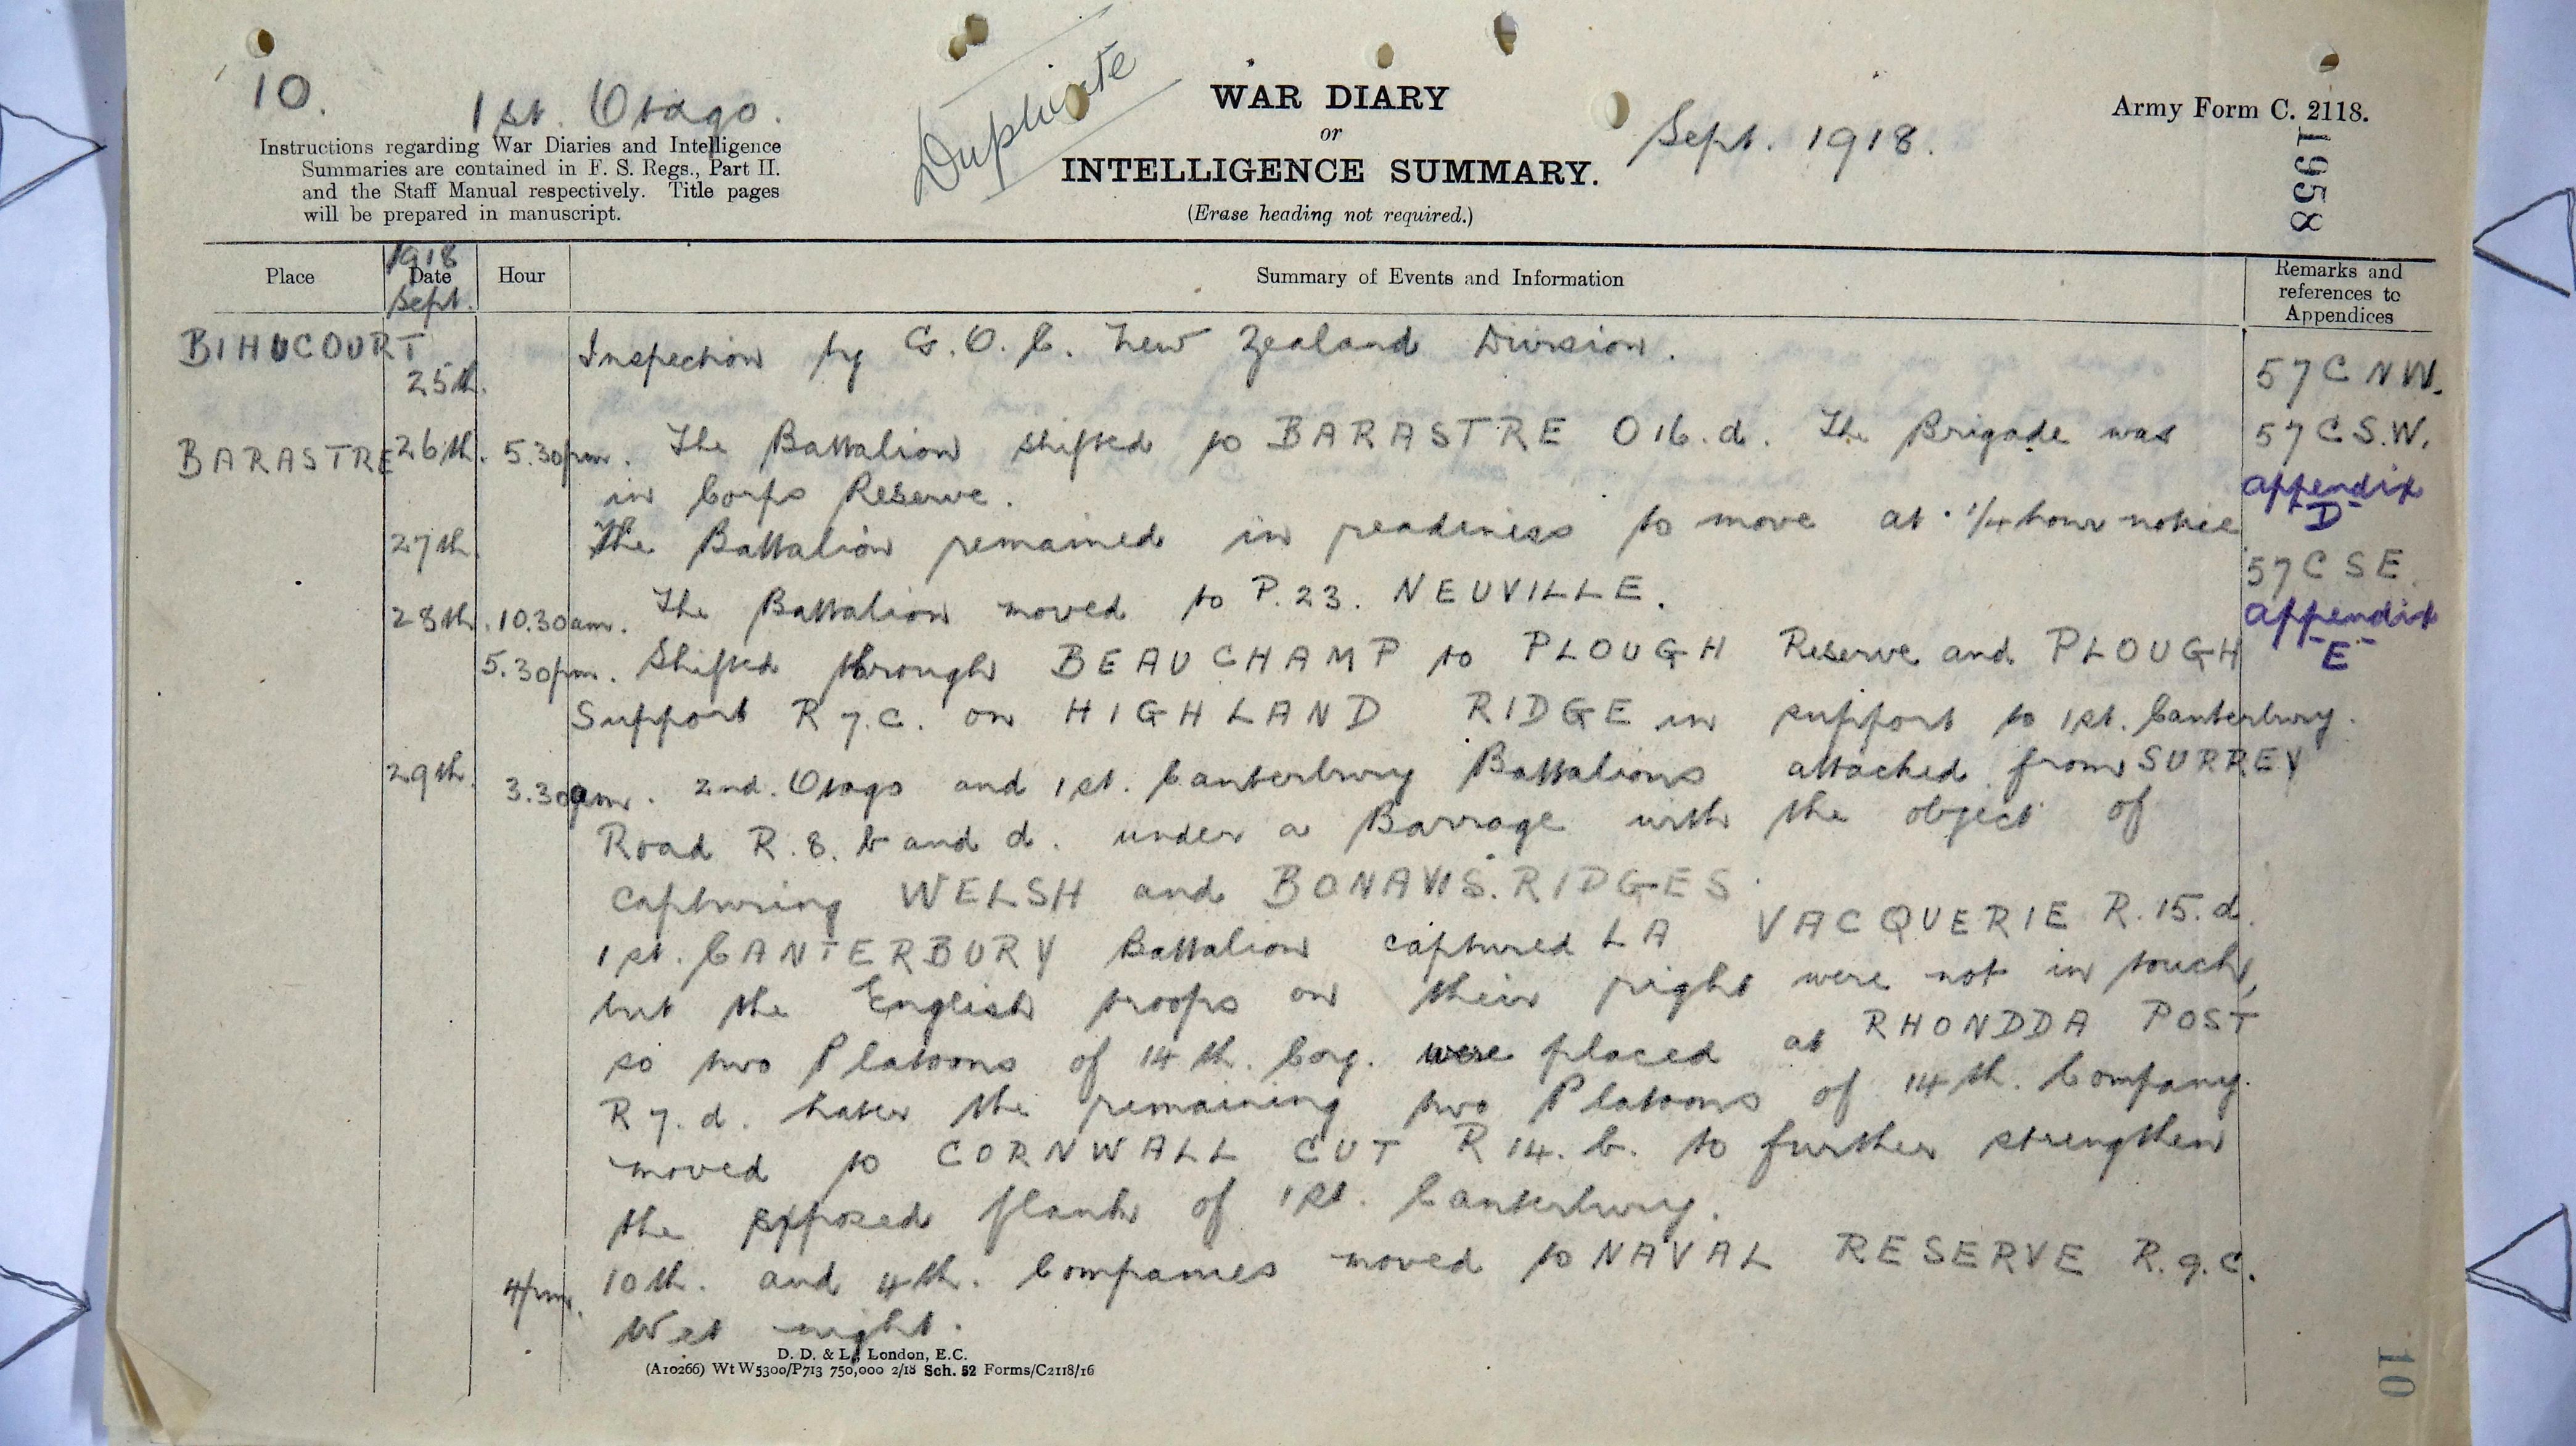 10.
1st. Otago.
Duplicate
WAR DIARY
or
INTELLIGENCE SUMMARY.
(Erase heading not required.)
Sept. 1918.
Army Form C. 2118.
1958
Instructions regarding War Diaries and Intelligence
Summaries are contained in F. S. Regs., Part II.
and the Staff Manual respectively. Title pages
will be prepared in manuscript.
Place
1918
Date
Sept.
Hour
Summary of Events and Information
Remarks and
references to
Appendices
BIHUCOURT 25th. Inspection by G.O.C. New Zealand Division. 57C NW.
BARASTRE 26th. 5.30pm. The Battalion shifted to BARASTRE O16.d. The Brigade was 57C S.W.
in Corps Reserve. appendix
D
27th. The Battalion remained in readiness to move at 1/4 hour notice
28th. 10.30am. The Battalion moved to P.23. NEUVILLE. 57C SE.
appendix
E
5.30pm. Shifted through BEAUCHAMP to PLOUGH Reserve and PLOUGH
Support R7.c. on HIGHLAND RIDGE in support to 1st. Canterbury.
29th. 3.30am. 2nd. Otago and 1st. Canterbury Battalions attached from SURREY
Road R.8. b and d. under a Barrage with the object of
capturing WELSH and BONAVIS. RIDGES.
1st. CANTERBURY Battalion captured LA VACQUERIE R.15.d.
but the English troops on their right were not in touch,
so two Platoons of 14th. Coy. were placed at RHONDDA POST
R7.d. Later the remaining two Platoons of 14th. Company.
moved to CORNWALL CUT R14.b. to further strengthen
the exposed flank of 1st. Canterbury.
4pm. 10th. and 4th. Companies moved to NAVAL RESERVE R.9.c.
Wet night.
D. D. & L., London, E.C.
(A10266) Wt W5300/P713 750,000 2/18 Sch. 52 Forms/C2118/16
10